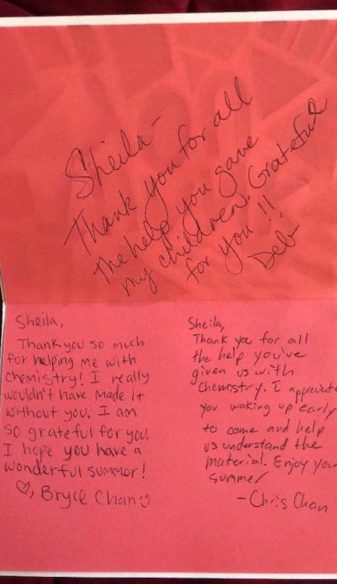 Sheila-
Thank you for all
the help you gave
my children. Grateful
for you!!
Deb
Sheila,
Thank you so much
for helping me with
chemistry! I really
wouldn't have made it
without you. I am
so grateful for you.
I hope you have a
wonderful summer!
♡, Bryce Chan
Sheila,
Thank you for all
the help you've
given us with
Chemistry. I appreciate
you waking up early
to come and help
us understand the
material. Enjoy your
summer
-Chris Chan